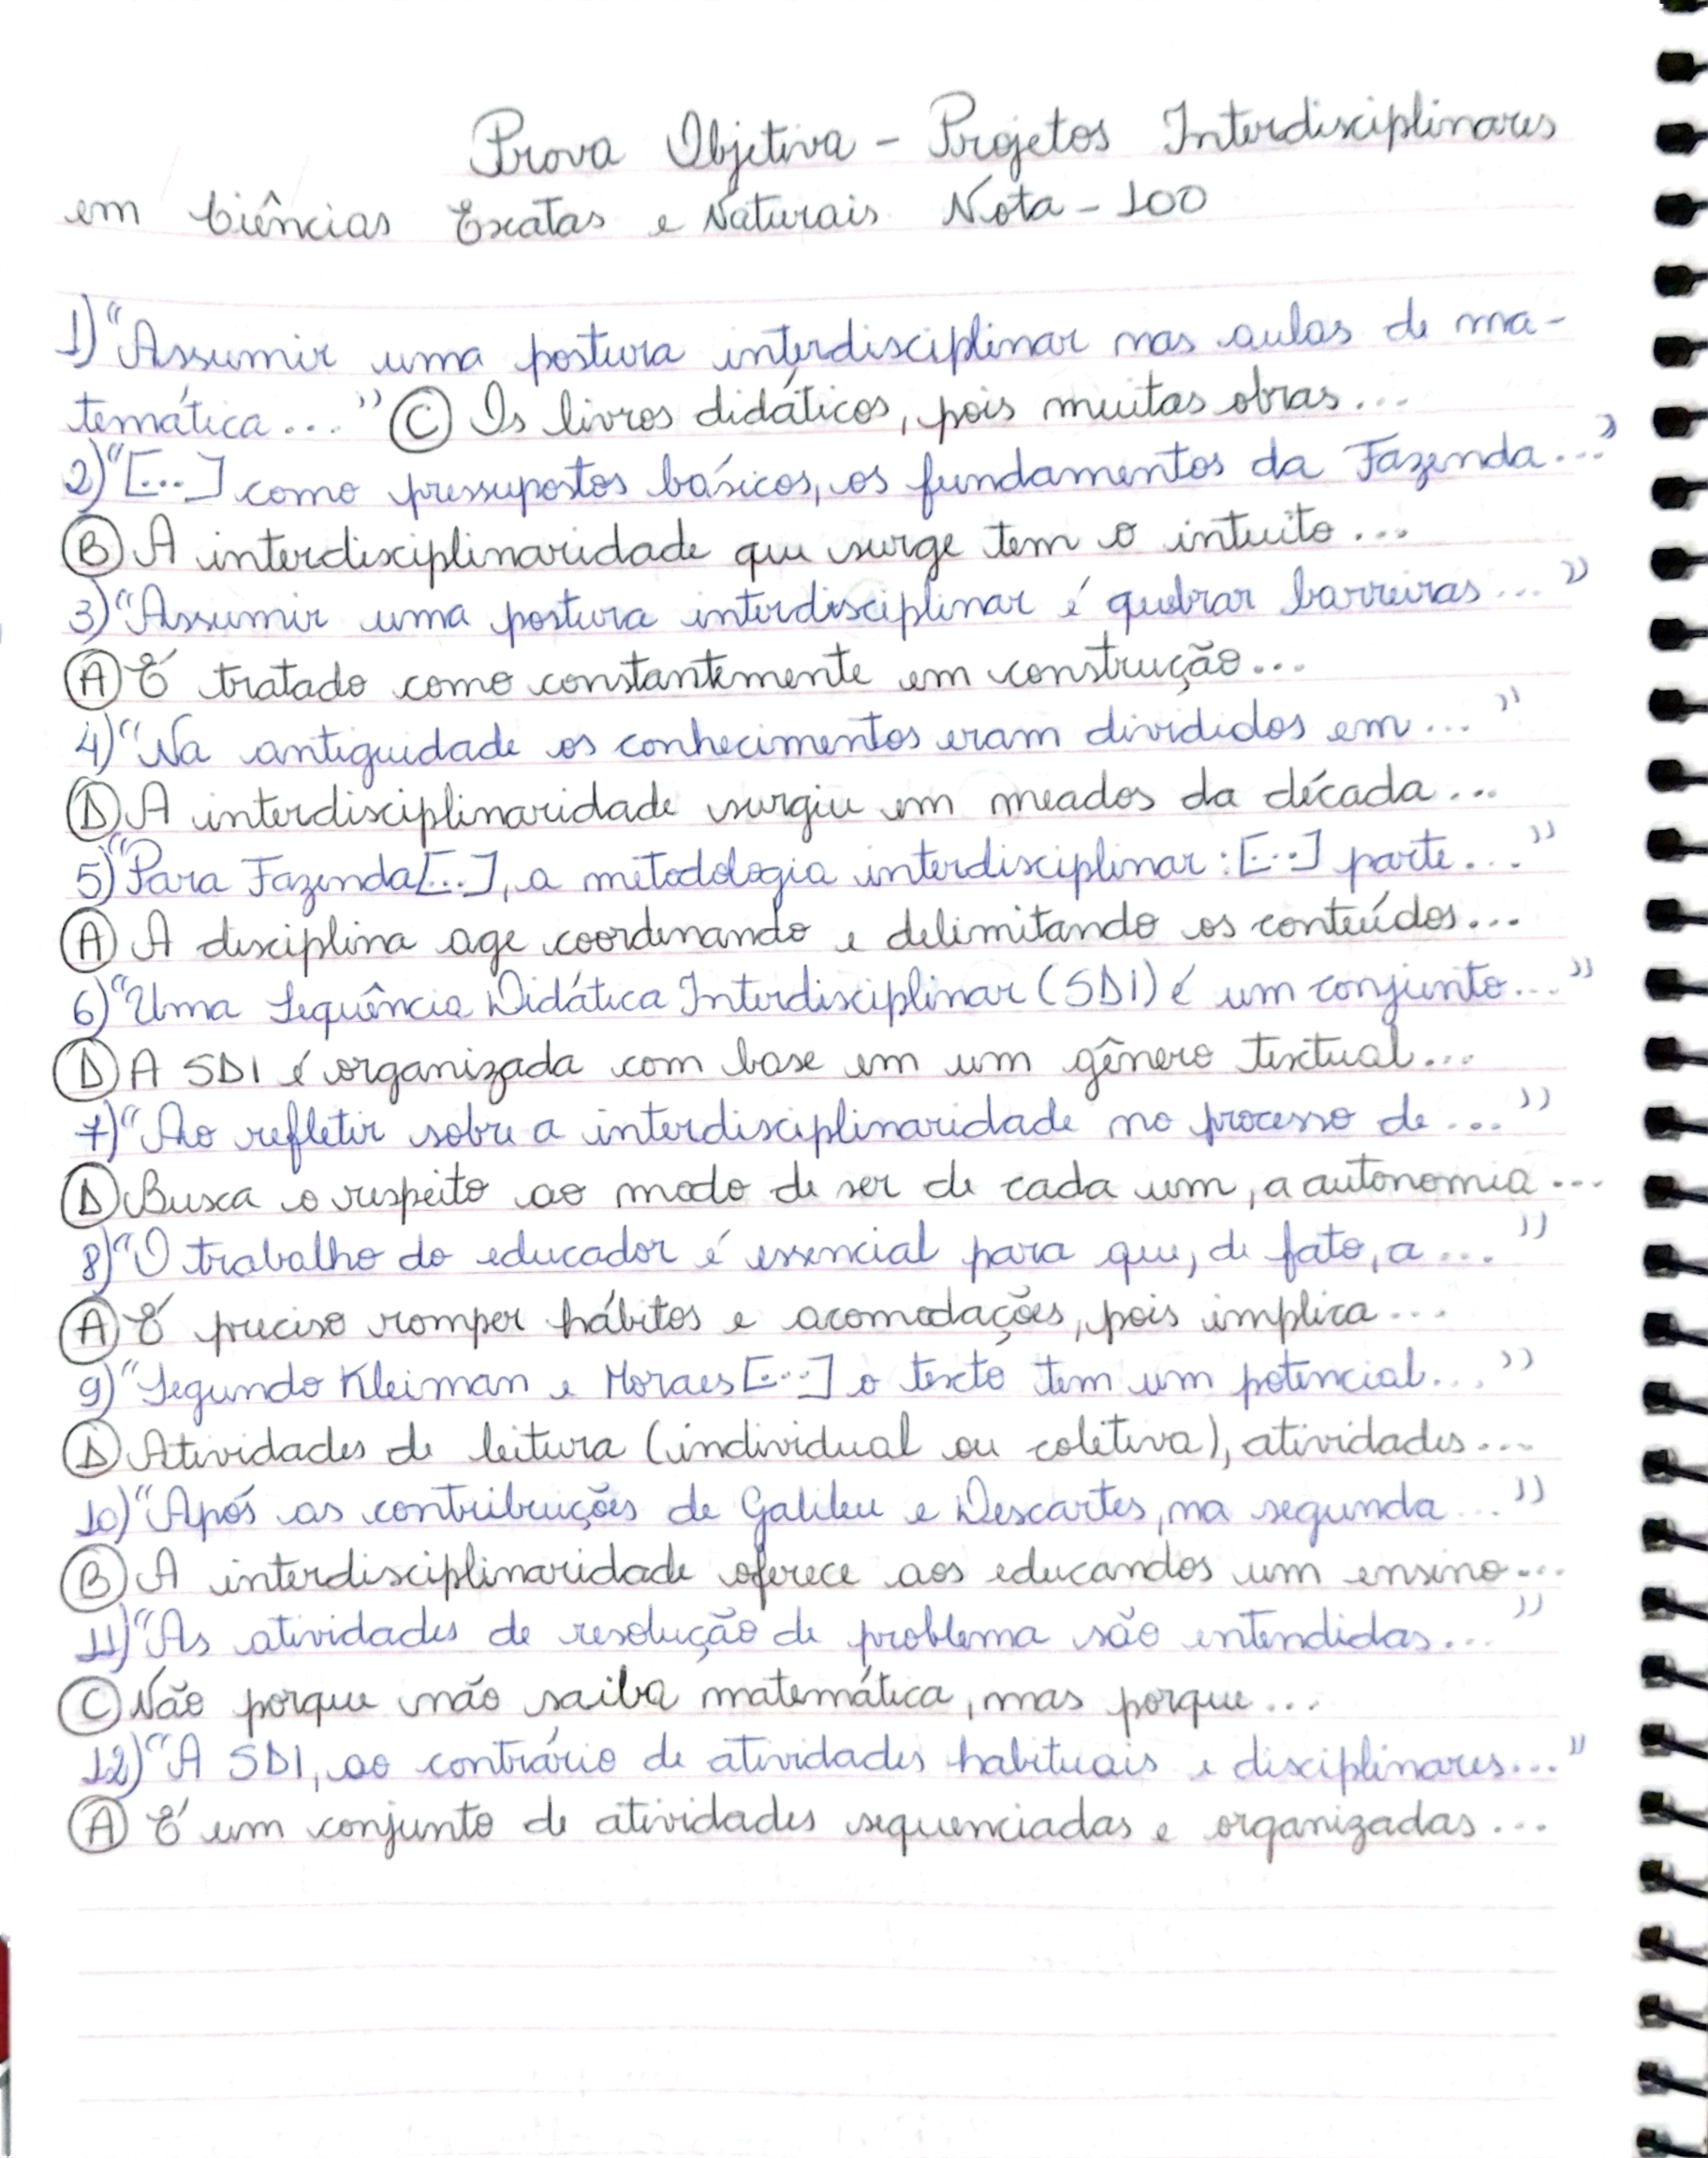 Prova Objetiva - Projetos Interdisciplinares
em Ciências Exatas e Naturais Nota - 100
1) "Assumir uma postura interdisciplinar nas aulas de ma-
temática..." (C) Os livros didáticos, pois muitas obras...
2) "[...] como pressupostos básicos, os fundamentos da Fazenda..."
(B) A interdisciplinaridade que surge tem o intuito...
3) "Assumir uma postura interdisciplinar é quebrar barreiras..."
(A) É tratado como constantemente em construção...
4) "Na antiguidade os conhecimentos eram divididos em..."
(D) A interdisciplinaridade surgiu em meados da década...
5) "Para Fazenda [...], a metodologia interdisciplinar: [...] parte..."
(A) A disciplina age coordenando e delimitando os conteúdos...
6) "Uma Sequência Didática Interdisciplinar (SDI) é um conjunto..."
(D) A SDI é organizada com base em um gênero textual...
7) "Ao refletir sobre a interdisciplinaridade no processo de..."
(D) Busca o respeito ao modo de ser de cada um, a autonomia...
8) "O trabalho do educador é essencial para que, de fato, a..."
(A) É preciso romper hábitos e acomodações, pois implica...
9) "Segundo Kleiman e Moraes [...] o texto tem um potencial..."
(D) Atividades de leitura (individual ou coletiva), atividades...
10) "Após as contribuições de Galileu e Descartes, na segunda..."
(B) A interdisciplinaridade oferece aos educandos um ensino...
11) "As atividades de resolução de problema são entendidas..."
(C) Não porque não saiba matemática, mas porque...
12) "A SDI, ao contrário de atividades habituais e disciplinares..."
(A) É um conjunto de atividades sequenciadas e organizadas...